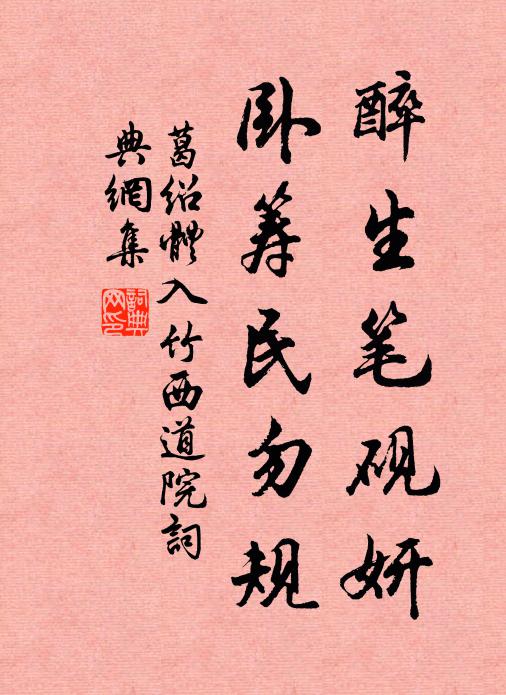 醉生笔砚妍
卧筹民勿规
葛绍體入竹西道院詞
典網集
詞典网印